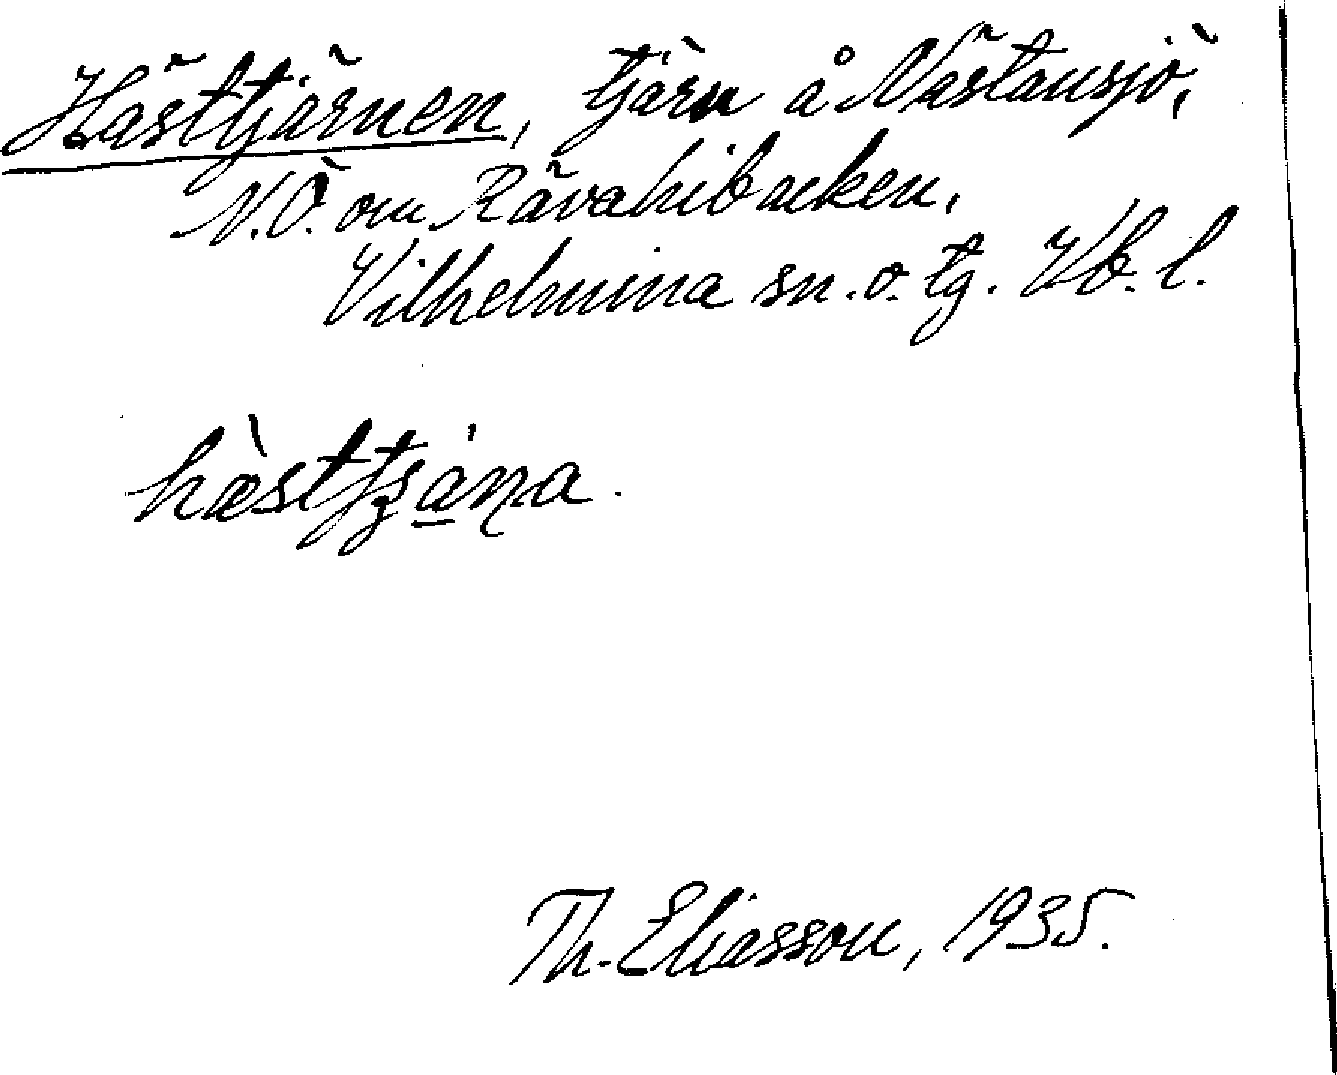 Hästtjärnen, tjärn å Nästansjö,
N.Ö. om Rävahibacken,
Vilhelmina sn. o. tg. Vb. l.
hæ̀sttʂáṇa.
Th. Eliasson, 1935.